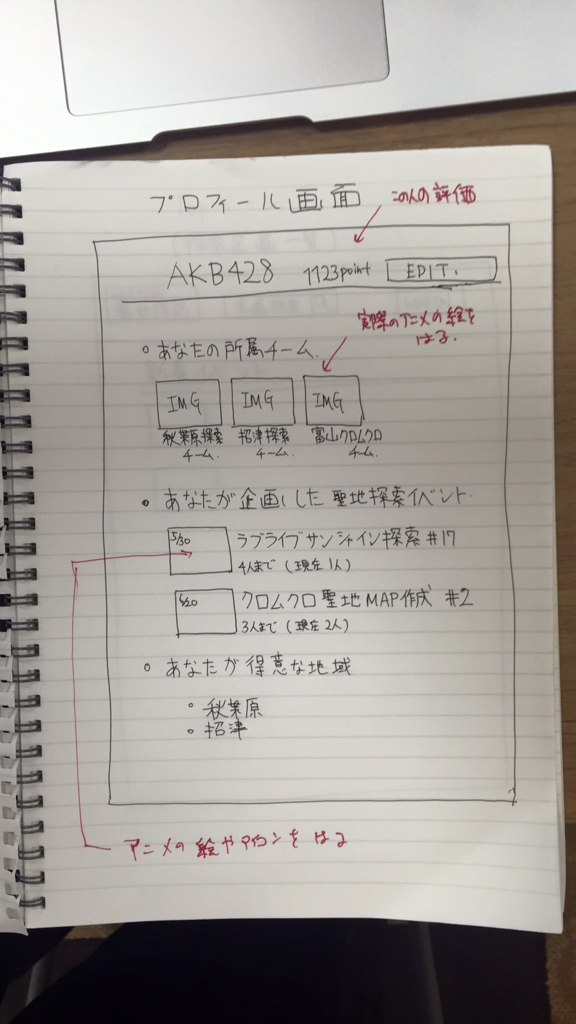 プロフィール画面
この人の評価
AKB428 1123point EDIT.
実際のアニメの絵を
はる.
。あなたの所属チーム.
IMG IMG IMG
秋葉原探索
チーム.
招津探索
チーム.
富山クロムクロ
チーム.
・あなたが企画した聖地探索イベント.
5/30 ラブライブサンシャイン探索 #17
4人まで (現在1人)
5/20 クロムクロ聖地MAP作成 #2
3人まで (現在2人)
。あなたが得意な地域
。秋葉原
。招津
アニメの絵やアイコンをはる